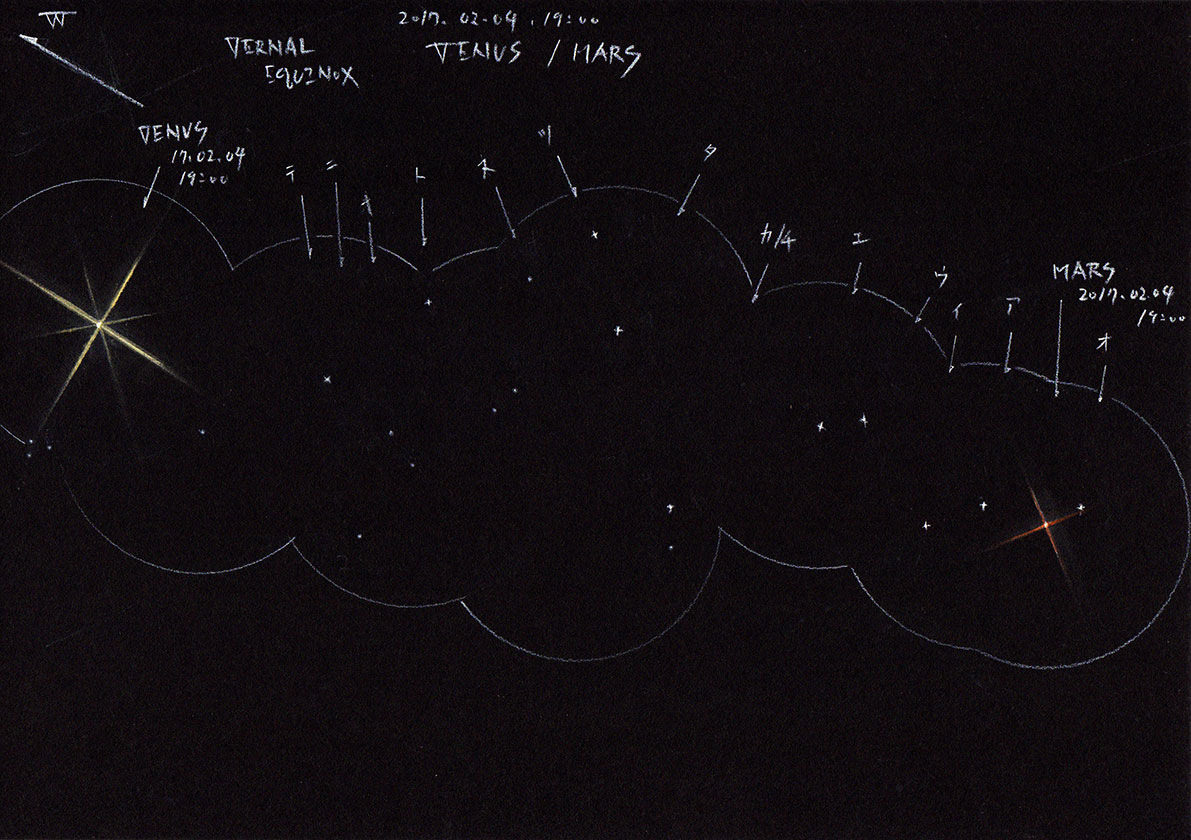 W
2017. 02.04. 19:00
VERNAL
EQUINOX
VENUS / MARS
VENUS
17.02.04
19:00
テ
ニ
ト
ネ
ツ
タ
カ/4
エ
ウ
イ
ア
MARS
2017.02.04
19:00
オ